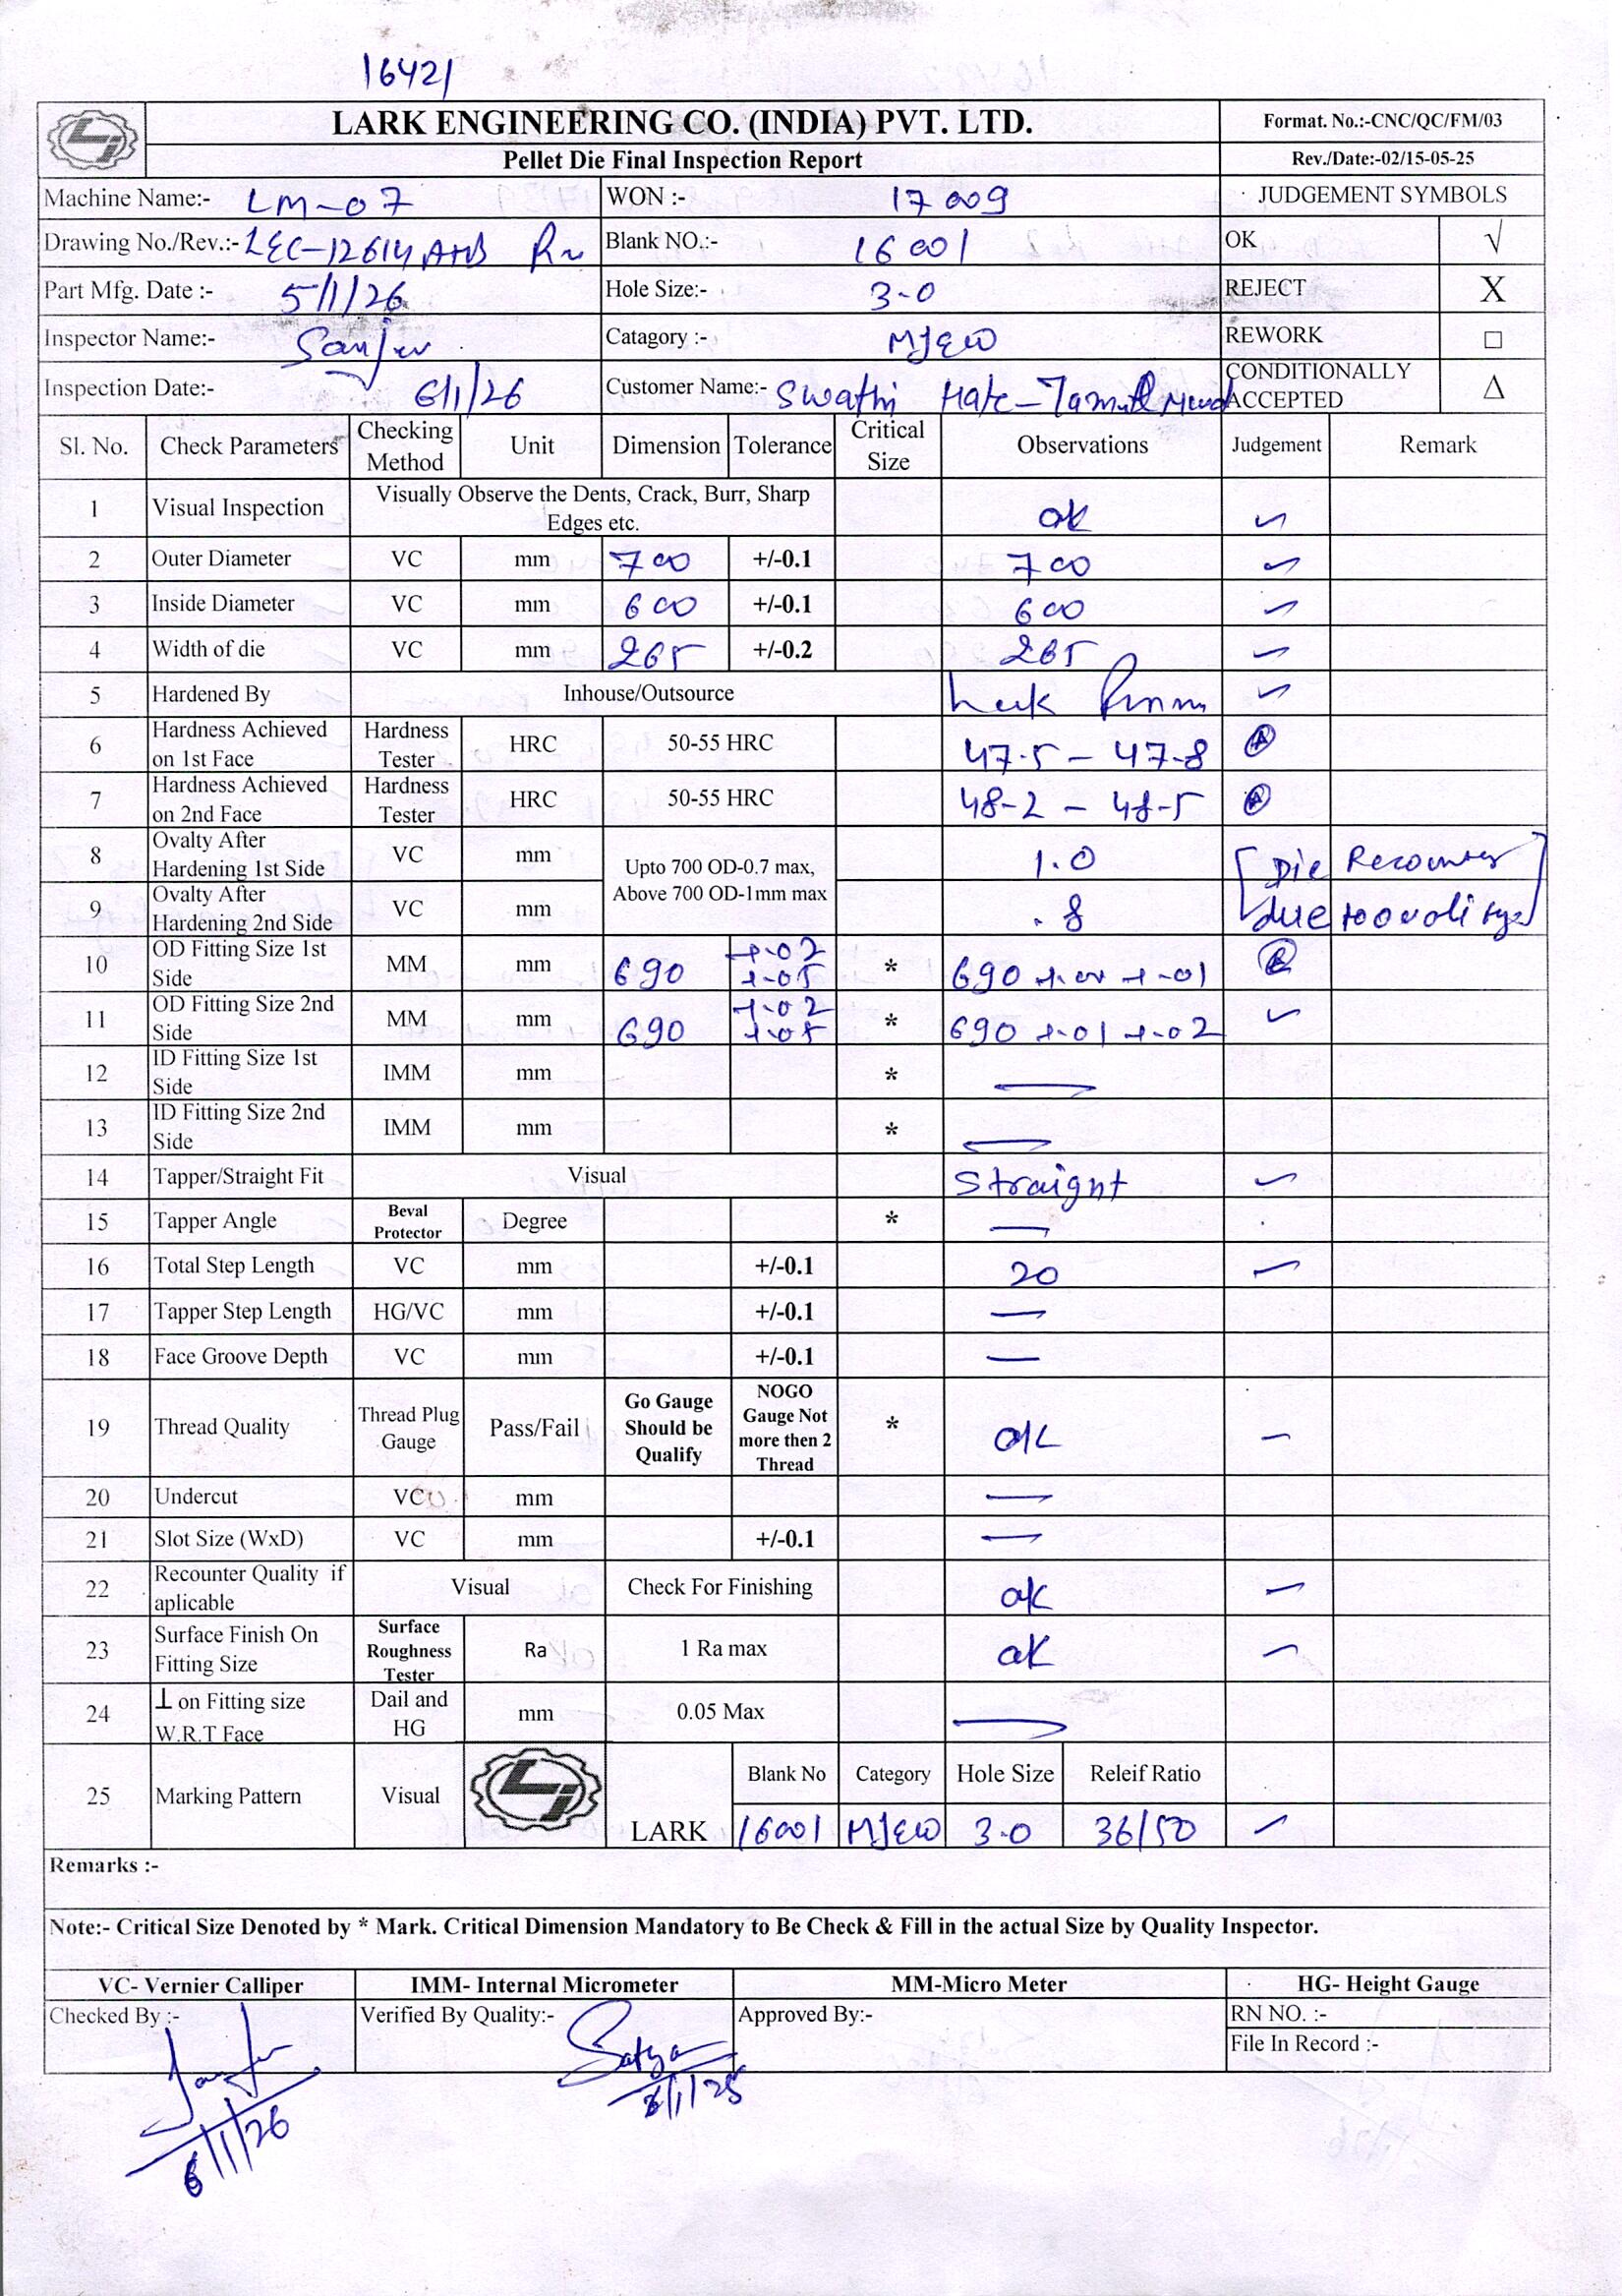 16421
LARK ENGINEERING CO. (INDIA) PVT. LTD. Format. No.:-CNC/QC/FM/03
Pellet Die Final Inspection Report Rev./Date:-02/15-05-25
Machine Name:- LM-07 WON :- 17009 JUDGEMENT SYMBOLS
Drawing No./Rev.:- LEC-12614 AHB Blank NO.:- 16001 OK √
Part Mfg. Date :- 5/1/26 Hole Size:- 3-0 REJECT X
Inspector Name:- Catagory :- REWORK □
Inspection Date:- 6/1/26 Customer Name:- Swathi Hatc- CONDITIONALLY ACCEPTED Δ
Sl. No. Check Parameters Checking Method Unit Dimension Tolerance Critical Size Observations Judgement Remark
1 Visual Inspection Visually Observe the Dents, Crack, Burr, Sharp Edges etc. ok ✓
2 Outer Diameter VC mm 700 +/-0.1 700 ✓
3 Inside Diameter VC mm 600 +/-0.1 600 ✓
4 Width of die VC mm 265 +/-0.2 265 ✓
5 Hardened By Inhouse/Outsource ✓
6 Hardness Achieved on 1st Face Hardness Tester HRC 50-55 HRC 47.5 - 47-8
7 Hardness Achieved on 2nd Face Hardness Tester HRC 50-55 HRC 48-2 - 48-5
8 Ovalty After Hardening 1st Side VC mm Upto 700 OD-0.7 max, Above 700 OD-1mm max 1.0 [Die Recounter
9 Ovalty After Hardening 2nd Side VC mm .8 due to
10 OD Fitting Size 1st Side MM mm 690 +.02 +.05 * 690 +.00 +.01
11 OD Fitting Size 2nd Side MM mm 690 +.02 +.05 * 690 +.01 +.02 ✓
12 ID Fitting Size 1st Side IMM mm * —
13 ID Fitting Size 2nd Side IMM mm * —
14 Tapper/Straight Fit Visual Straight ✓
15 Tapper Angle Beval Protector Degree * —
16 Total Step Length VC mm +/-0.1 20 ✓
17 Tapper Step Length HG/VC mm +/-0.1 —
18 Face Groove Depth VC mm +/-0.1 —
19 Thread Quality Thread Plug Gauge Pass/Fail Go Gauge Should be Qualify NOGO Gauge Not more then 2 Thread * ok ✓
20 Undercut VC mm —
21 Slot Size (WxD) VC mm +/-0.1 —
22 Recounter Quality if aplicable Visual Check For Finishing ok ✓
23 Surface Finish On Fitting Size Surface Roughness Tester Ra 1 Ra max ok ✓
24 ⊥ on Fitting size W.R.T Face Dail and HG mm 0.05 Max —
25 Marking Pattern Visual LARK Blank No Category Hole Size Releif Ratio
16001 3.0 36/50 ✓
Remarks :-
Note:- Critical Size Denoted by * Mark. Critical Dimension Mandatory to Be Check & Fill in the actual Size by Quality Inspector.
VC- Vernier Calliper IMM- Internal Micrometer MM-Micro Meter HG- Height Gauge
Checked By :- Verified By Quality:- Satya Approved By:- RN NO. :-
File In Record :-
6/1/26